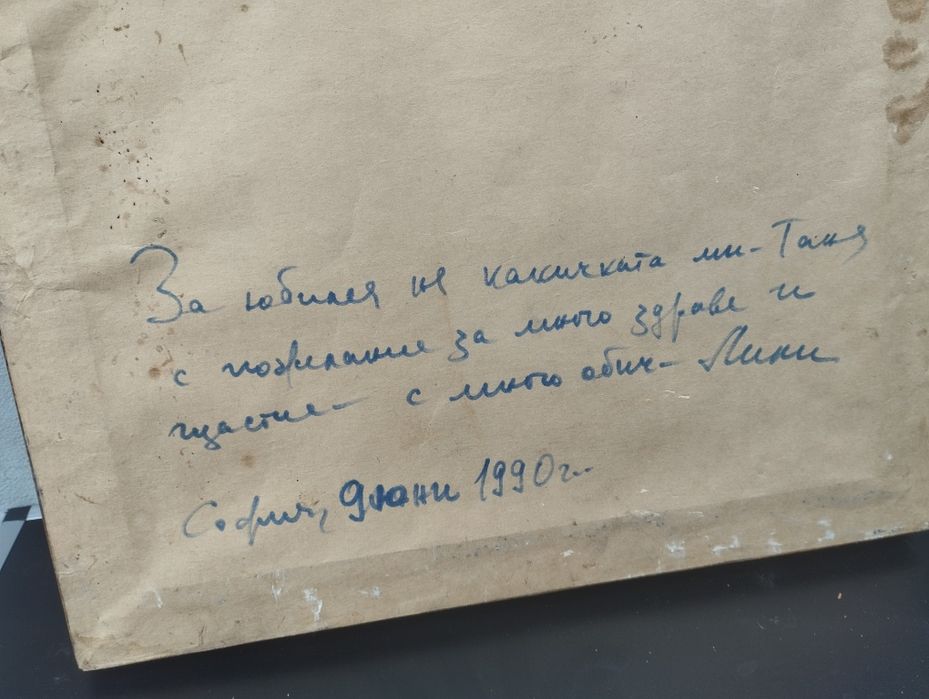 За юбилея на какичката ми - Таня
с пожелание за много здраве и
щастие - с много обич - Лини
София, 9 юни 1990 г.